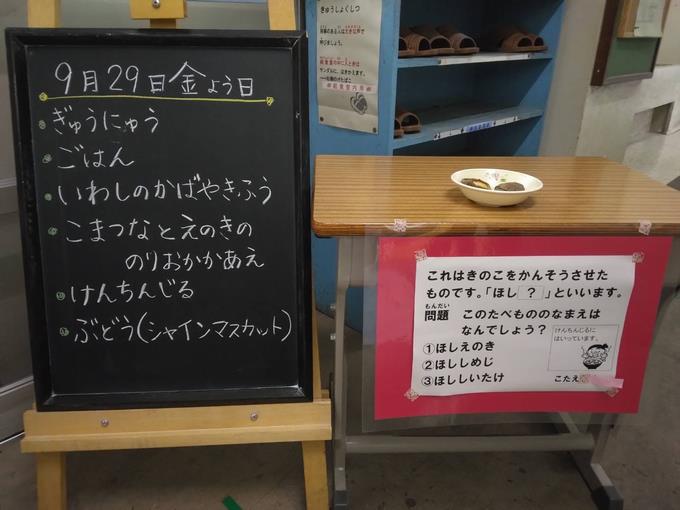 9月29日金よう日
ぎゅうにゅう
ごはん
いわしのかばやきふう
こまつなとえのきの
のりおかかあえ
けんちんじる
ぶどう(シャインマスカット)
きゅうしょくしつ
これはきのこをかんそうさせた
ものです。「ほし ? 」といいます。
もんだい
問題 このたべもののなまえは
なんでしょう?
①ほしえのき
②ほししめじ
③ほししいたけ
けんちんじるに
はいっています。
こたえ